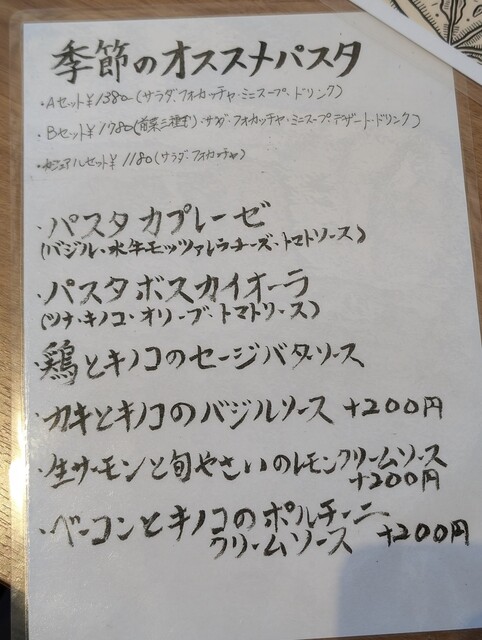 季節のオススメパスタ
・Aセット¥1380(サラダ・フォカッチャ・ミニスープ・ドリンク)
・Bセット¥1780(前菜三種盛・サラダ・フォカッチャ・ミニスープ・デザート・ドリンク)
・カジュアルセット¥1180(サラダ・フォカッチャ)
・パスタ カプレーゼ
(バジル・水牛モッツァレラチーズ・トマトソース)
・パスタ ボスカイオーラ
(ツナ・キノコ・オリーブ・トマトソース)
・鶏とキノコのセージバターソース
・カキとキノコのバジルソース +200円
・生サーモンと旬やさいのレモンクリームソース
+200円
・ベーコンとキノコのポルチーニ
クリームソース +200円